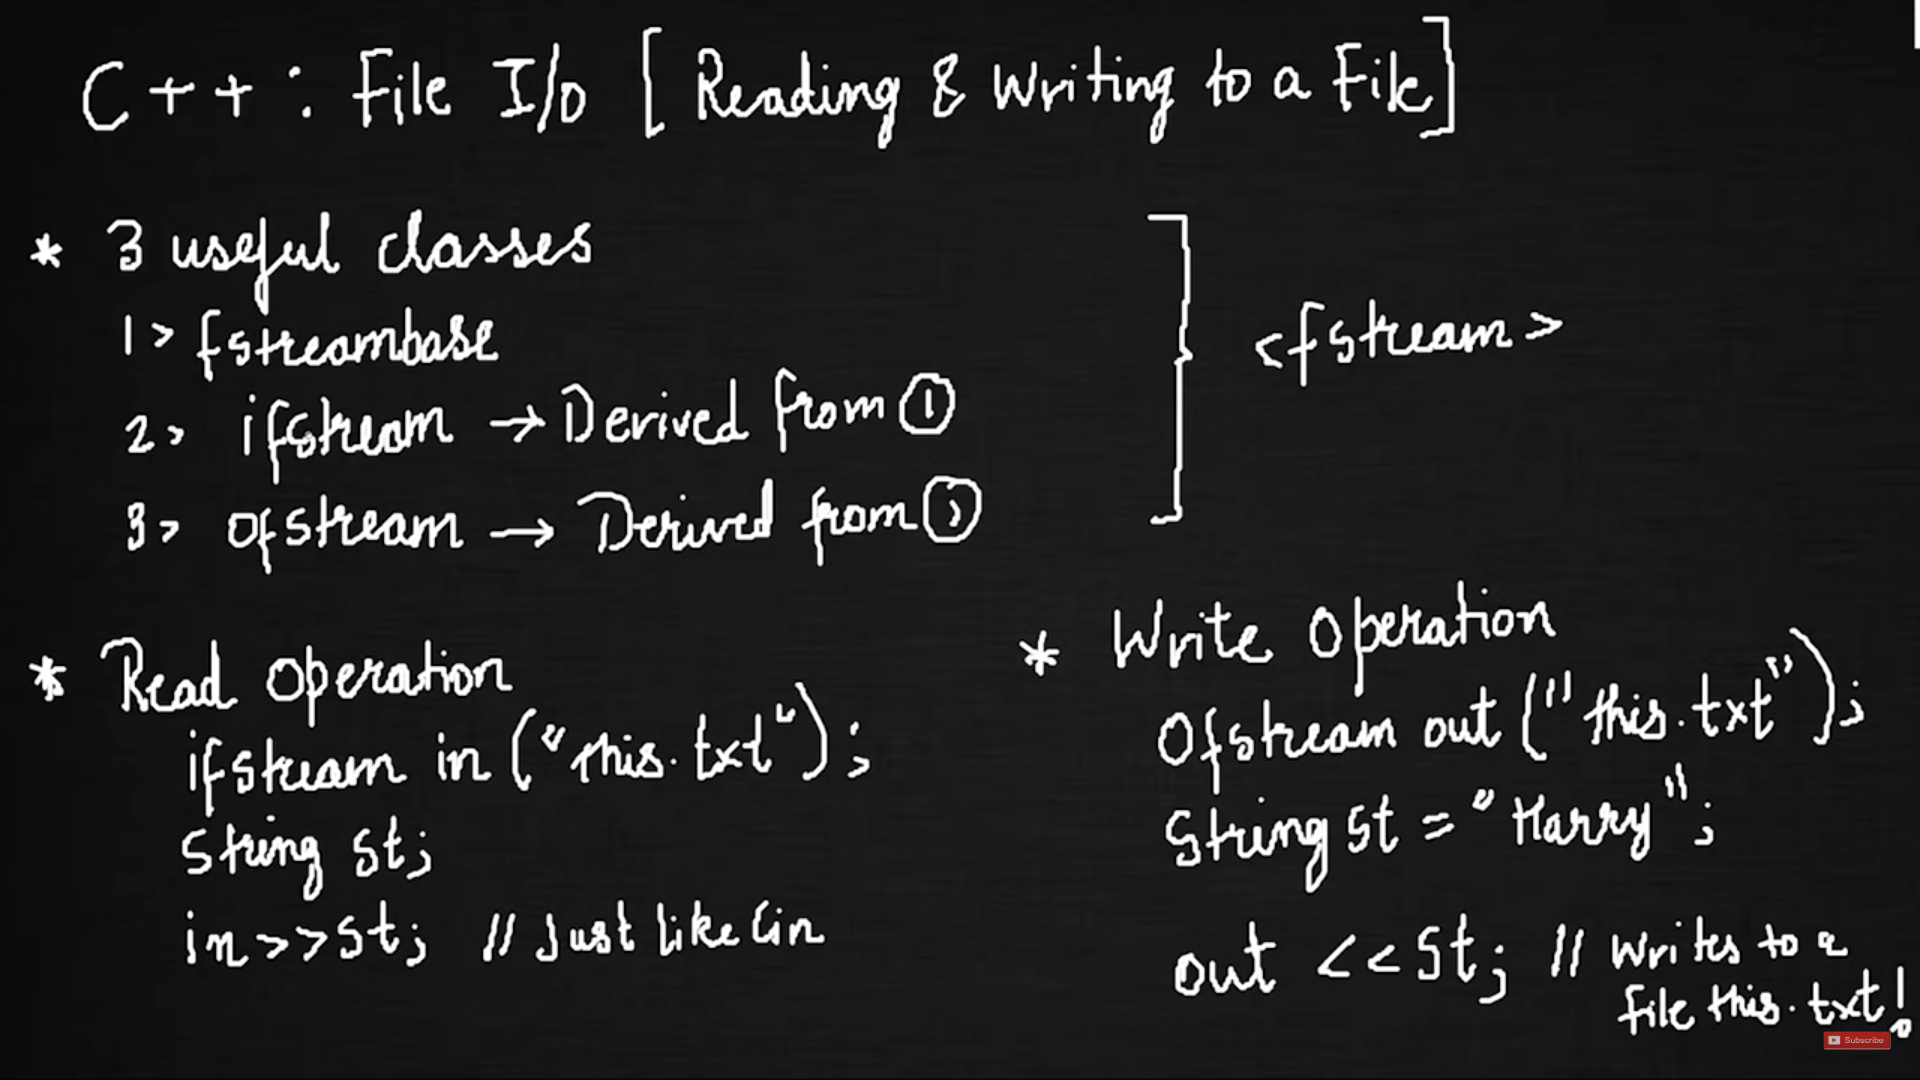 C++ : File I/O [Reading & Writing to a File]
* 3 useful classes
1> fstreambase
2> ifstream → Derived from ①
3> ofstream → Derived from ①
<fstream>
* Read operation
ifstream in ("this.txt");
String st;
in>>st; // Just like Cin
* Write operation
Ofstream out ("this.txt");
String st = "Harry";
out <<st; // Writes to a
file this.txt!
Subscribe